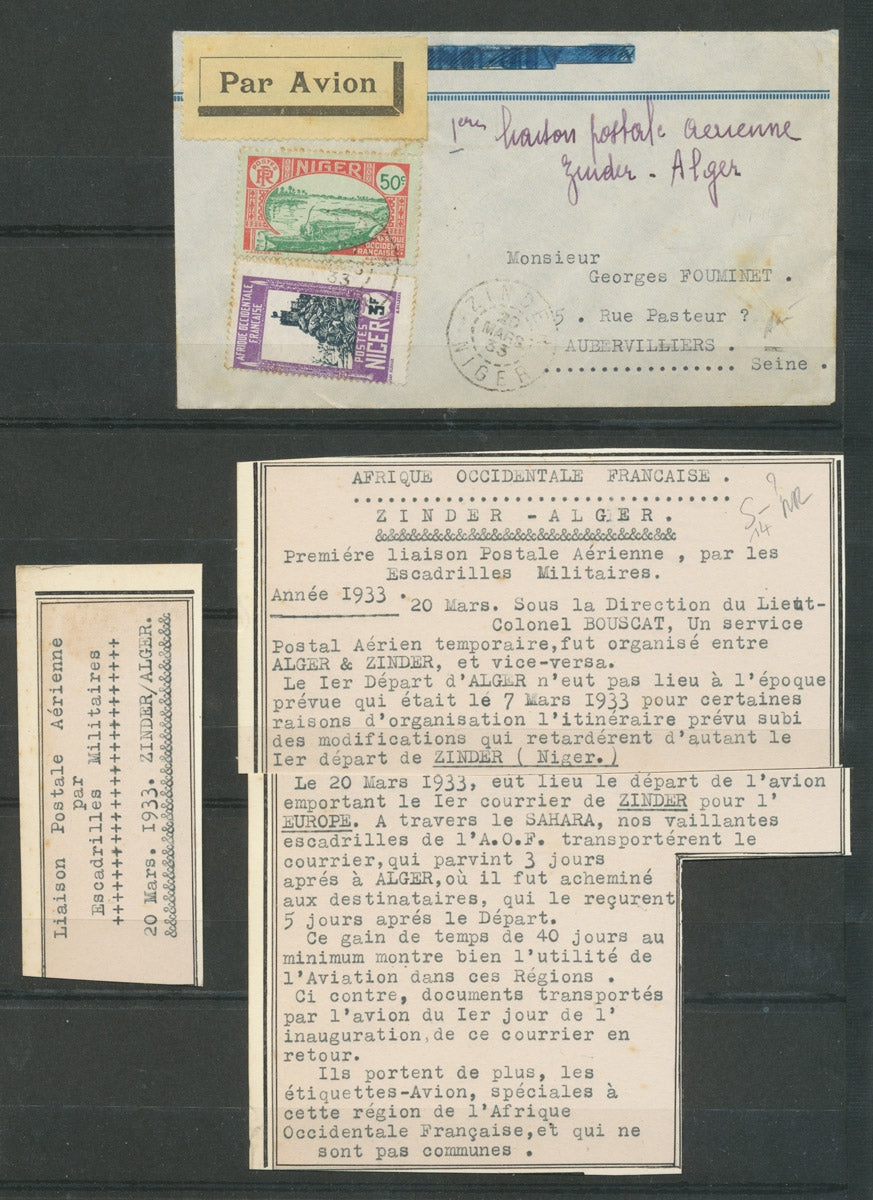 Par Avion
1eres liaison postale aerienne
Zinder - Alger
POSTES
RF
NIGER
50c
AFRIQUE
OCCIDENTALE
FRANÇAISE
33
AFRIQUE OCCIDENTALE
FRANÇAISE
3F
POSTES
NIGER
ZINDER
20
MARS
33
NIGER
Monsieur
Georges FOUMINET .
5 . Rue Pasteur ?
AUBERVILLIERS .
Seine .
AFRIQUE OCCIDENTALE FRANCAISE .
Z I N D E R - A L G E R .
&&&&&&&&&&&&&&&&&&&&&&&&&&&&&
Premiére liaison Postale Aérienne , par les
Escadrilles Militaires.
Année I933 .
20 Mars. Sous la Direction du Lieut-
Colonel BOUSCAT, Un service
Postal Aérien temporaire,fut organisé entre
ALGER & ZINDER, et vice-versa.
Le Ier Départ d'ALGER n'eut pas lieu à l'époque
prévue qui était lé 7 Mars I933 pour certaines
raisons d'organisation l'itinéraire prévu subi
des modifications qui retardérent d'autant le
Ier départ de ZINDER ( Niger.)
Le 20 Mars I933, eut lieu le départ de l'avion
emportant le Ier courrier de ZINDER pour l'
EUROPE. A travers le SAHARA, nos vaillantes
escadrilles de l'A.O.F. transportérent le
courrier,qui parvint 3 jours
aprés à ALGER,où il fut acheminé
aux destinataires, qui le reçurent
5 jours aprés le Départ.
Ce gain de temps de 40 jours au
minimum montre bien l'utilité de
l'Aviation dans ces Régions .
Ci contre, documents transportés
par l'avion du Ier jour de l'
inauguration,de ce courrier en
retour.
Ils portent de plus, les
étiquettes-Avion, spéciales à
cette région de l'Afrique
Occidentale Française,et qui ne
sont pas communes .
Liaison Postale Aérienne
par
Escadrilles Militaires
++++++++++++++++++++++
20 Mars. I933. ZINDER/ALGER.
&&&&&&&&&&&&&&&&&&&&&&&&&&&&